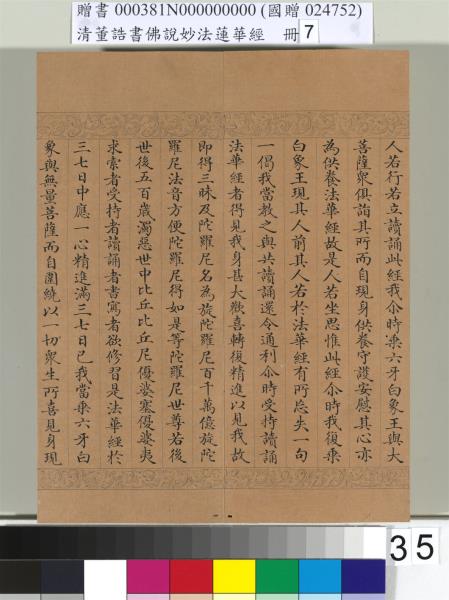 贈書 000381N000000000 (國贈 024752)
清董誥書佛說妙法蓮華經 冊 7
人若行若立讀誦此經我尒時乘六牙白象王與大
菩薩衆俱詣其所而自現身供養守護安慰其心亦
為供養法華經故是人若坐思惟此經尒時我復乘
白象王現其人前其人若於法華經有所忘失一句
一偈我當教之與共讀誦還令通利尒時受持讀誦
法華經者得見我身甚大歡喜轉復精進以見我故
即得三昧及陀羅尼名為旋陀羅尼百千萬億旋陀
羅尼法音方便陀羅尼得如是等陀羅尼世尊若後
世後五百歲濁惡世中比丘比丘尼優婆塞優婆夷
求索者受持者讀誦者書寫者欲修習是法華經於
三七日中應一心精進滿三七日已我當乘六牙白
象與無量菩薩而自圍繞以一切衆生所喜見身現
35